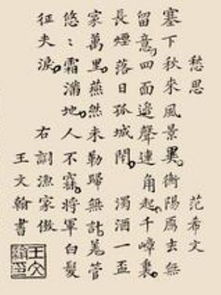 愁思 范希文
塞下秋來風景異。衡陽鴈去無
留意。四面邊聲連角起。千嶂裏。
長煙落日孤城閉。濁酒一盃
家萬里。燕然未勒歸無計。羌管
悠〻霜滿地。人不寐。將軍白髮
征夫淚。 右調漁家傲
王文翰書